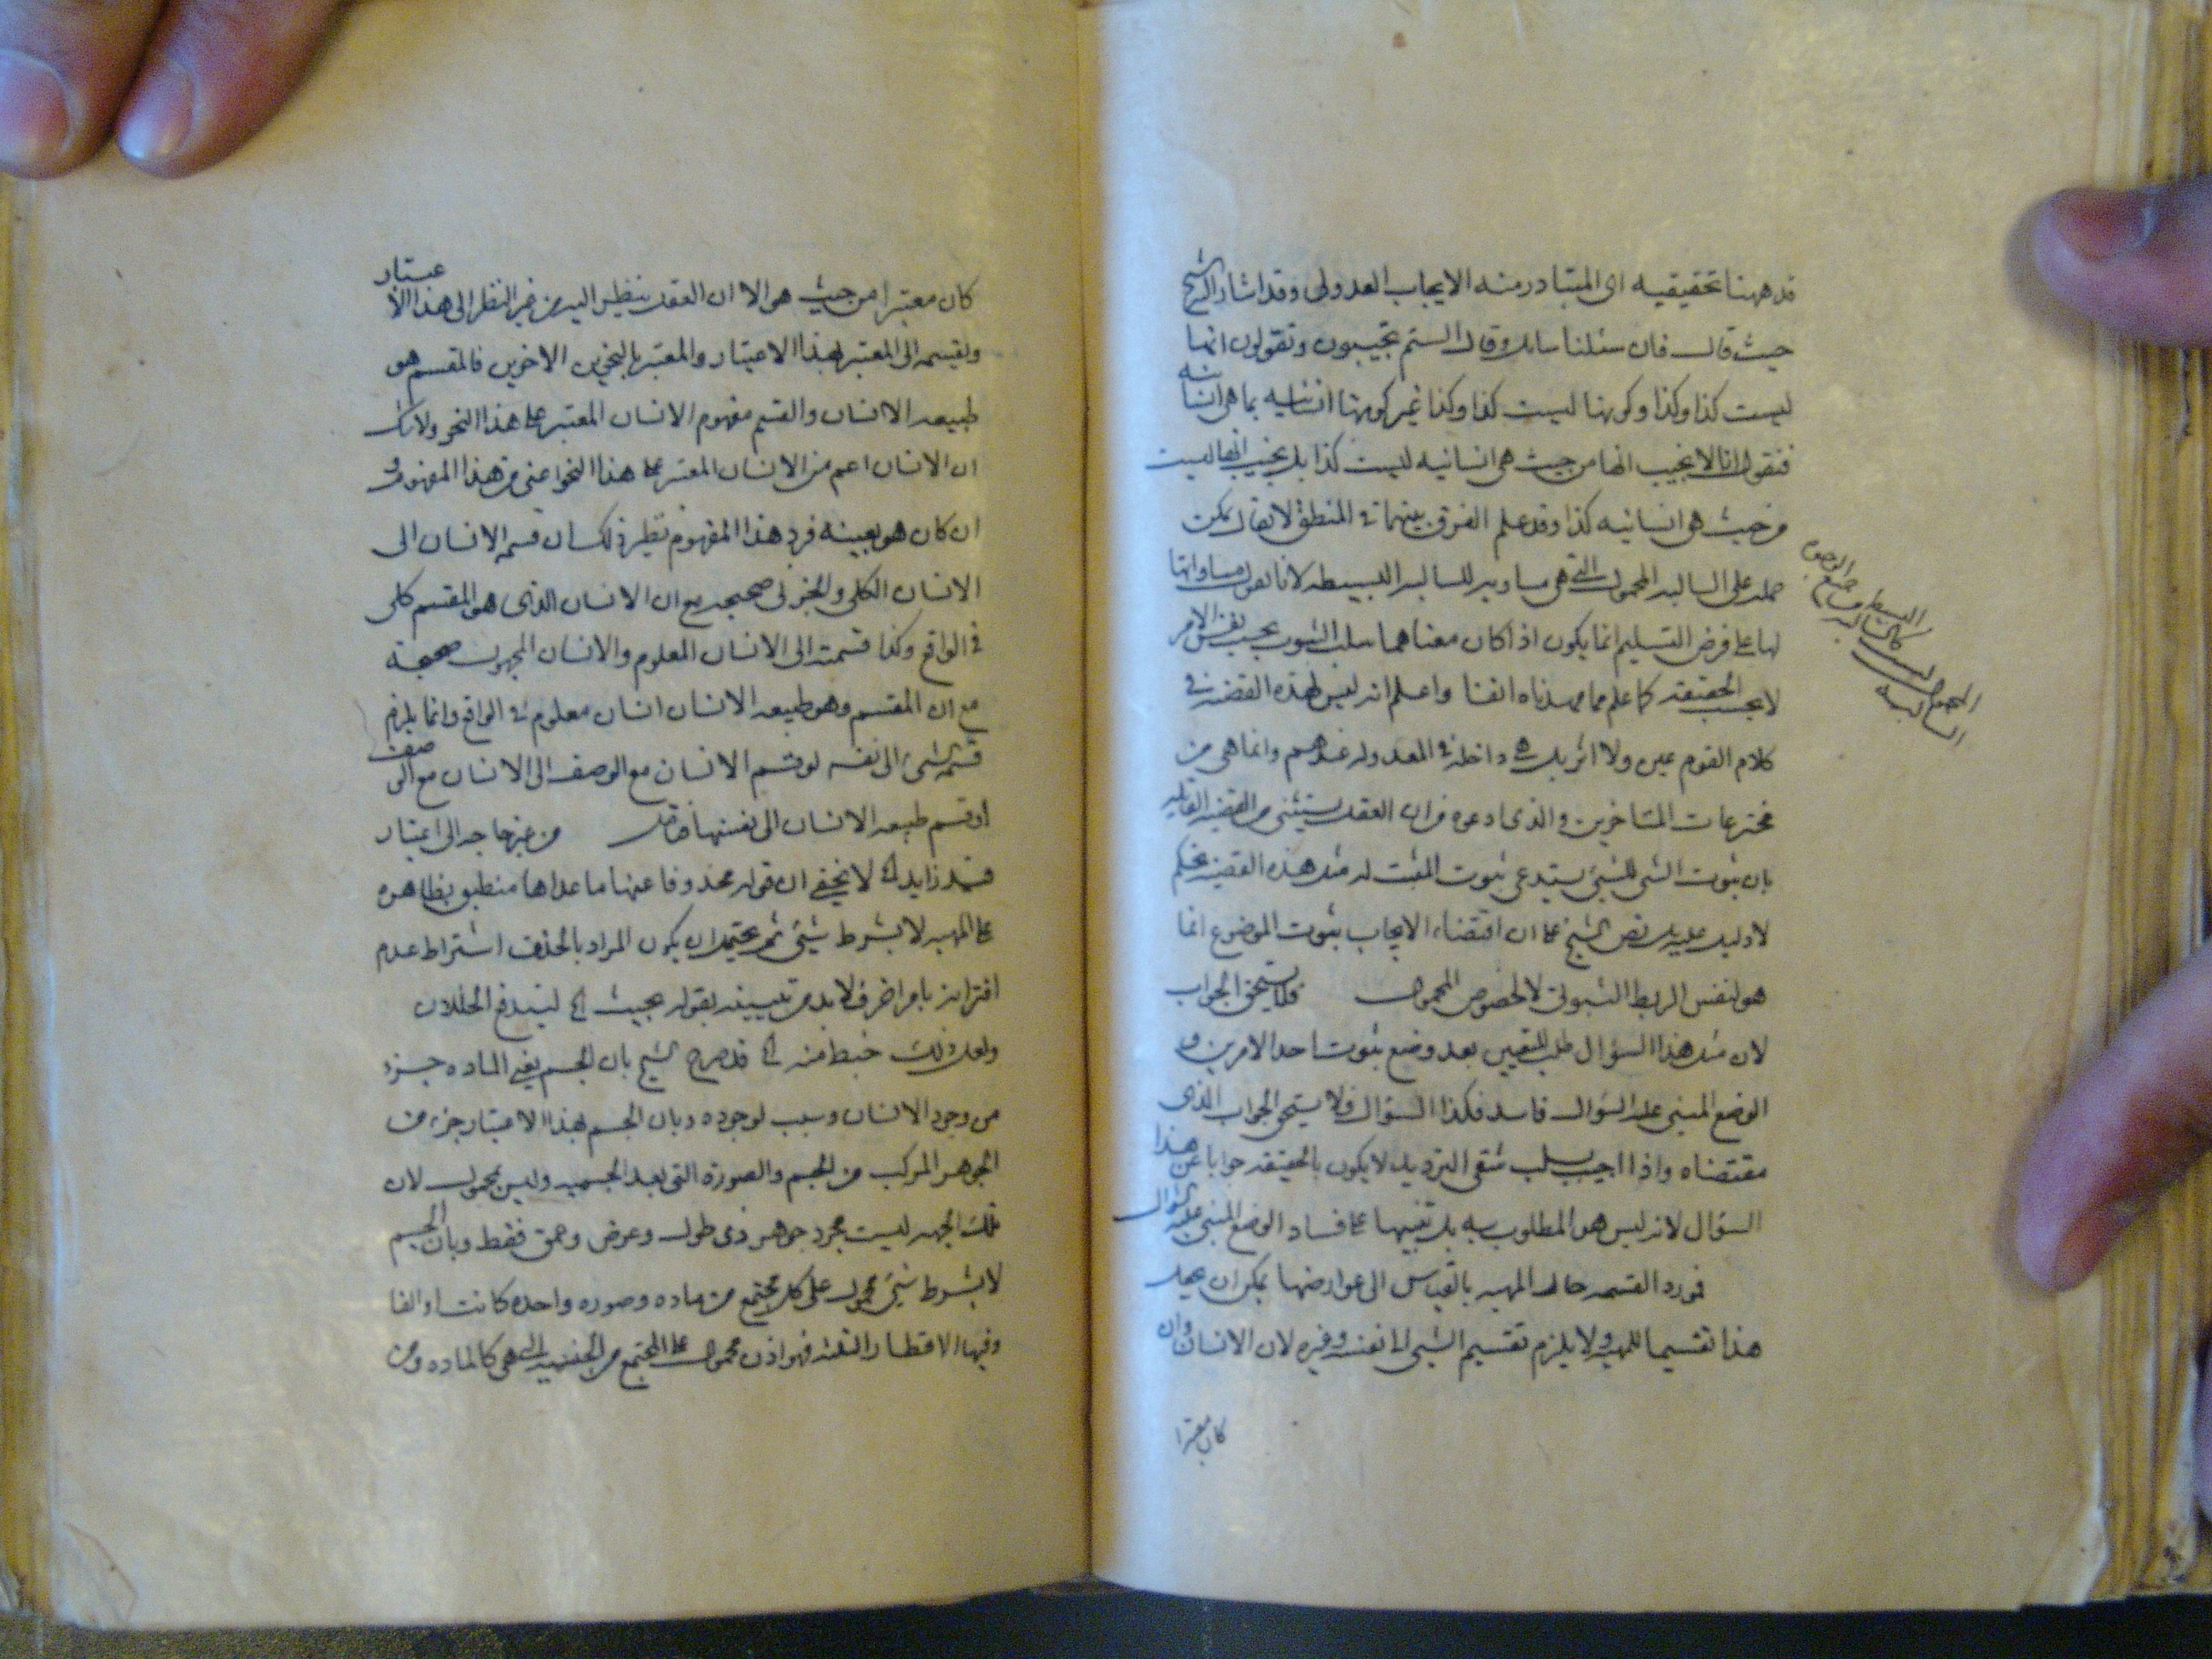 قد ههنا تحقيقيه اى المتبادر منه الايجاب العدولى وقد اشار الشيخ
حيث قال فان سئلنا سايل وقال الستم تجيبون وتقولون انها
ليست كذا وكذا وكونها ليست كذا وكذا غير كونها انسانيه بما هى انسانيه
فنقول انا لا نجيب انها من حيث هى انسانيه ليست كذا بل نجيب انها ليست
من حيث هى انسانيه كذا وقد علم الفرق بينهما فى المنطق لا يقال يمكن
حمله على السالبه المحمول التى هى مساويه للسالبه البسيطه لانا نقول مساواتها
لها على فرض التسليم انما يكون اذا كان معناهما سلب الثبوت بحسب نفس الامر
لا بحسب الحقيقه كما علم مما مهدناه انفا واعلم انه ليس لهذه القضيه فى
كلام القوم عين ولا اثر بل هى داخله فى المعدوله عندهم وانما هى من
مخترعات المتاخرين والذى ادعوه من ان العقل يستثنى من القضيه القايله
بان ثبوت الشى للشئ يستدعى ثبوت المثبت له مثل هذه القضيه تحكم
لا دليل عليه بل نص الشيخ على ان اقتضاء الايجاب ثبوت الموضوع انما
هو لنفس الربط الثبوتى لا لخصوص المحمول فلا يستحق الجواب
لان مثل هذا السؤال طلب للتعيين بعد وضع ثبوت احد الامرين و
الوضع المبنى عليه السؤال فاسد فكذا السؤال فلا يستحق الجواب الذى
مقتضاه واذا اجيب بسلب شقى الترديد لا يكون بالحقيقه جوابا عن هذا
السؤال لانه ليس هو المطلوب به بل تنبيها على فساد الوضع المبنى عليه السؤال
فمورد القسمه حال المهيه بالقياس الى عوارضها يمكن ان يجعل
هذا تقسيما للمهيه ولا يلزم تقسيم الشئ الى نفسه وغيره لان الانسان وان
كان معتبرا
كان معتبرا من حيث هو الا ان العقل ينظر اليه من غير النظر الى هذا الاعتبار
ويقسمه الى المعتبر بهذا الاعتبار والمعتبر بالنحوين الاخرين فالمقسم هو
طبيعه الانسان والقسم مفهوم الانسان المعتبر على هذا النحو ولا شك
ان الانسان اعم من الانسان المعتبر على هذا النحو اعنى من هذا المفهوم و
ان كان هو بعينه فرد هذا المفهوم نظير ذلك ان قسمه الانسان الى
الانسان الكلى والجزئى صحيحه مع ان الانسان الذى هو المقسم كلى
فى الواقع وكذا قسمته الى الانسان المعلوم والانسان المجهول صحيحة
مع ان المقسم وهو طبيعه الانسان انسان معلوم فى الواقع وانما يلزم
قسمه الشئ الى نفسه لو قسم الانسان مع الوصف الى الانسان مع الوصف
او قسم طبيعه الانسان الى نفسها فتامل من غير حاجه الى اعتبار
قيد زايد لا يخفى ان قوله محذوفا عنها ما عداها منطبق بظاهره
على المهيه لا بشرط شئ ثم يحتمل ان يكون المراد بالحذف اشتراط عدم
اقترانه بامر اخر فلا بد من تبيينه بقوله بحيث الخ ليندفع الخللان
ولعل ذلك خبط منه الخ قد صرح الشيخ بان الجسم بمعنى الماده جزء
من وجود الانسان وسبب لوجوده وبان الجسم بهذا الاعتبار جزء من
الجوهر المركب من الجسم والصورة التى بعد الجسميه وليس بمحمول لان
تلك الجمله ليست بمجرد جوهر ذى طول وعرض وعمق فقط وبان الجسم
لا بشرط شئ محمول على كل مجتمع من ماده وصوره واحده كانت او الفا
وفيها الاقطار الثلثه فهو اذن محمول على المجتمع من الجسميه التى هى كالماده ومن